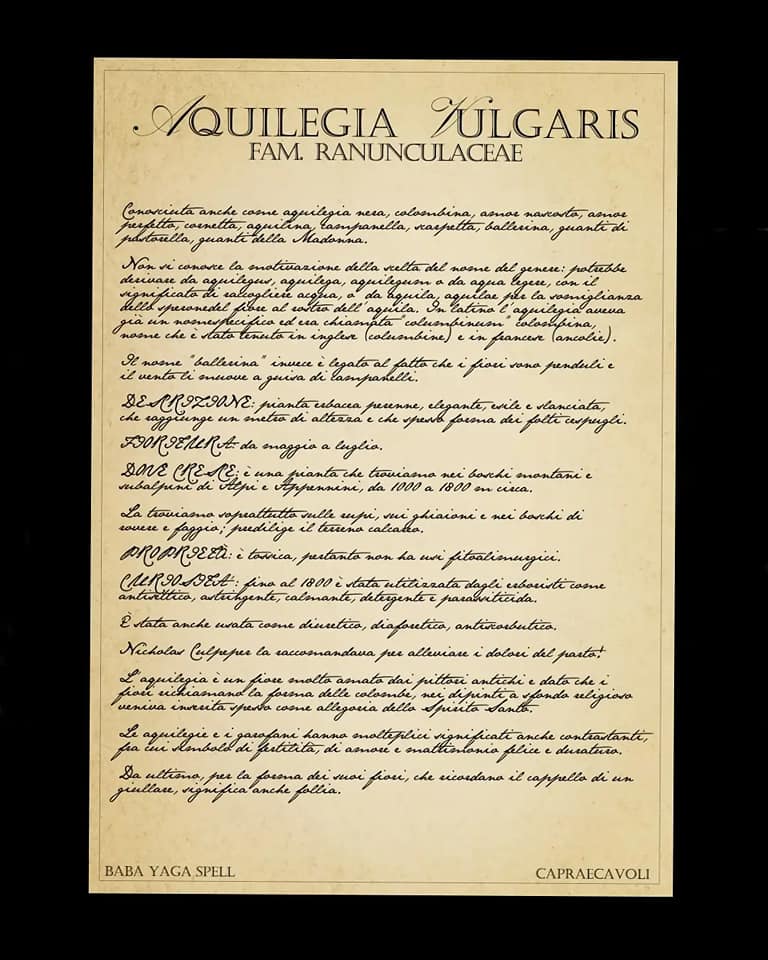 Aquilegia Vulgaris
Fam. Ranunculaceae
Conosciuta anche come aquilegia nera, colombina, amor nascosto, amor
perfetto, cornetta, aquilina, campanella, scarpetta, ballerina, guanti di
pastorella, guanti della Madonna.
Non si conosce la motivazione della scelta del nome del genere: potrebbe
derivare da aquilegus, aquilega, aquilegum o da aqua legere, con il
significato di raccogliere acqua, o da aquila, aquilae per la somiglianza
dello speronedel fiore al rostro dell'aquila. In latino l'aquilegia aveva
già un nomespecifico ed era chiamata "columbinum" colombina,
nome che è stato tenuto in inglese (columbine) e in francese (ancolie).
Il nome "ballerina" invece è legato al fatto che i fiori sono penduli e
il vento li muove a guisa di campanelli.
DESCRIZIONE: pianta erbacea perenne, elegante, esile e slanciata,
che raggiunge un metro di altezza e che spesso forma dei folti cespugli.
FIORITURA: da maggio a luglio.
DOVE CRESCE: è una pianta che troviamo nei boschi montani e
subalpini di Alpi e Appennini, da 1000 a 1800 m circa.
La troviamo soprattutto sulle rupi, sui ghiaioni e nei boschi di
rovere e faggio; predilige il terreno calcareo.
PROPRIETÀ: è tossica, pertanto non ha usi fitoalimurgici.
CURIOSITÀ: fino al 1800 è stata utilizzata dagli erboristi come
antisettico, astringente, calmante, detergente e parassiticida.
È stata anche usata come diuretico, diaforetico, antiscorbutico.
Nicholas Culpeper la raccomandava per alleviare i dolori del parto!
L'aquilegia è un fiore molto amato dai pittori antichi e dato che i
fiori richiamano la forma delle colombe, nei dipinti a sfondo religioso
veniva inserita spesso come allegoria dello Spirito Santo.
Le aquilegie e i garofani hanno molteplici significati anche contrastanti,
fra cui simbolo di fertilità, di amore e matrimonio felice e duraturo.
Da ultimo, per la forma dei suoi fiori, che ricordano il cappello di un
giullare, significa anche follia.
Baba Yaga Spell
Capraecavoli